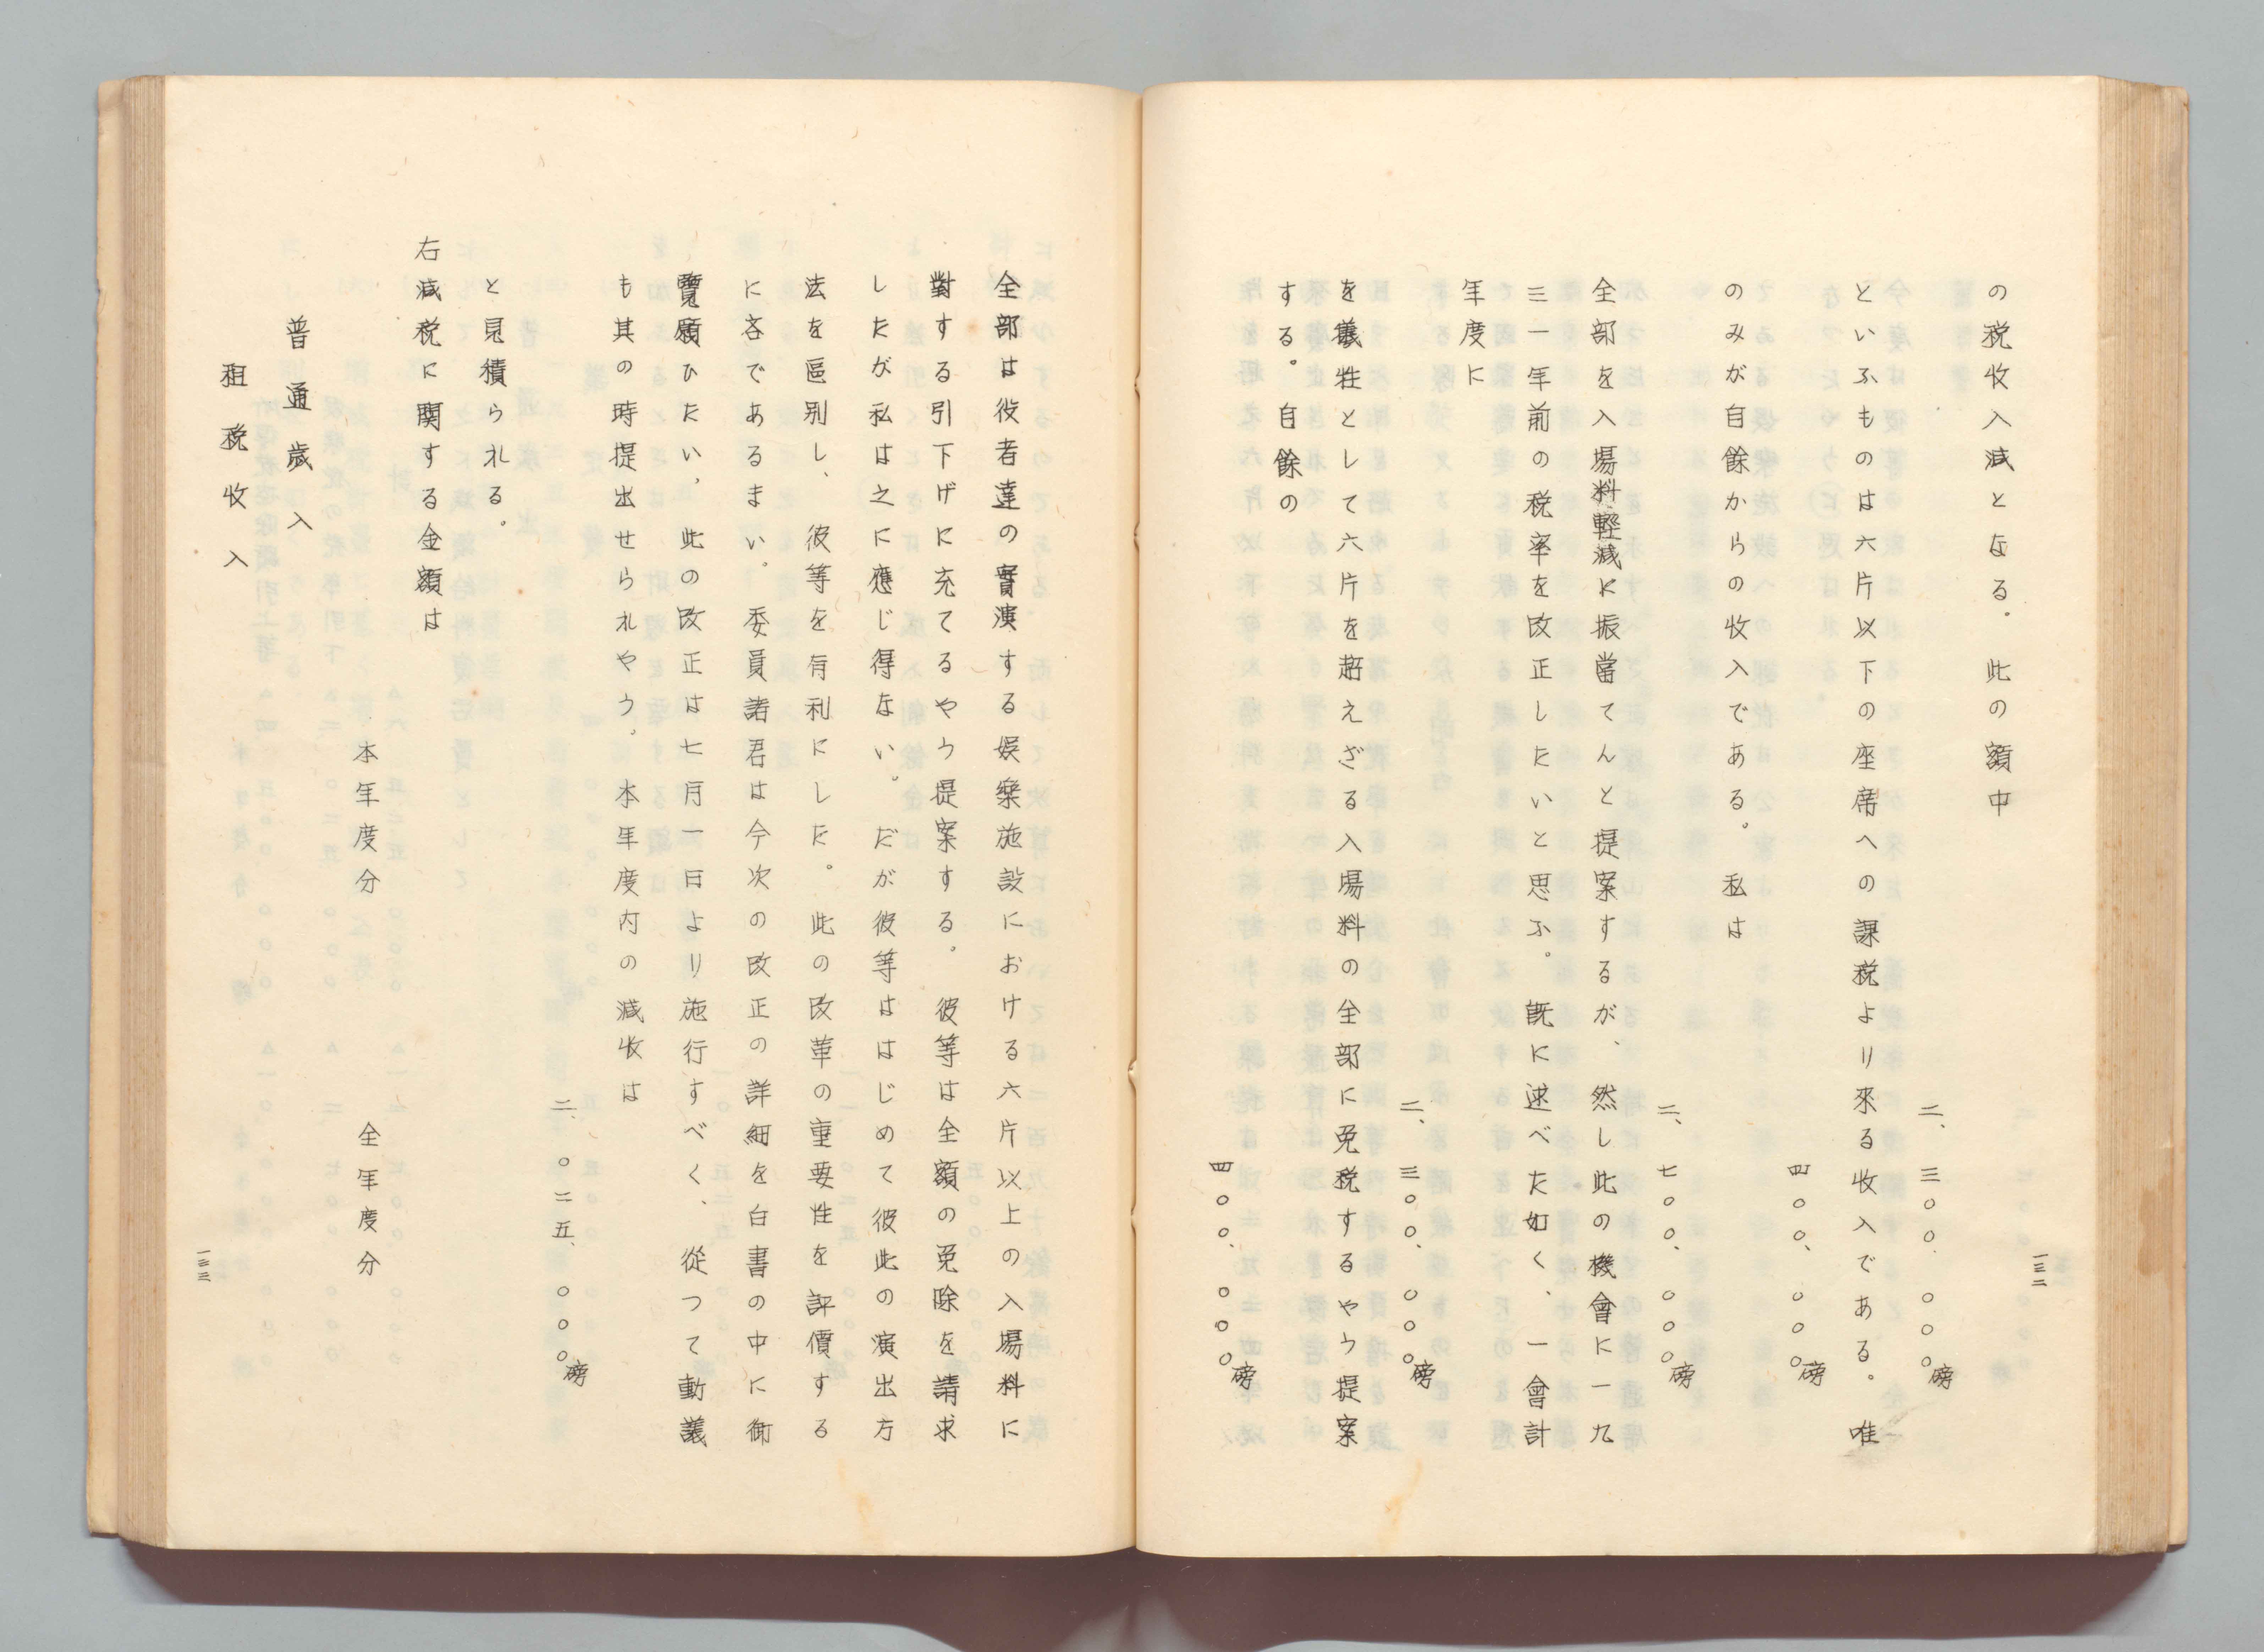 の税收入減となる。此の額中
二、三〇〇、〇〇〇磅
といふものは六片以下の座席への課税より來る收入である。唯
四〇〇、〇〇〇磅
のみが自餘からの收入である。私は
二、七〇〇、〇〇〇磅
全部を入場料軽減に振當てんと提案するが、然し此の機會に一九
三一年前の税率を改正したいと思ふ。既に述べた如く、一會計
年度に
二、三〇〇、〇〇〇磅
を犧牲として六片を超えざる入場料の全部に免税するやう提案
する。自餘の
四〇〇、〇〇〇磅
一三二
全部は役者達の實演する娯樂施設における六片以上の入場料に
對する引下げに充てるやう提案する。彼等は全額の免除を請求
したが私は之に應じ得ない。だが彼等ははじめて彼此の演出方
法を區別し、彼等を有利にした。此の改革の重要性を評價する
に吝であるまい。委員諸君は今次の改正の詳細を白書の中に御
覽願ひたい、此の改正は七月一日より施行すべく、從つて動議
も其の時提出せられやう。本年度内の減收は
二、〇二五、〇〇〇磅
と見積られる。
右減税に関する金額は
本年度分 全年度分
普通歳入
租税收入
一三三